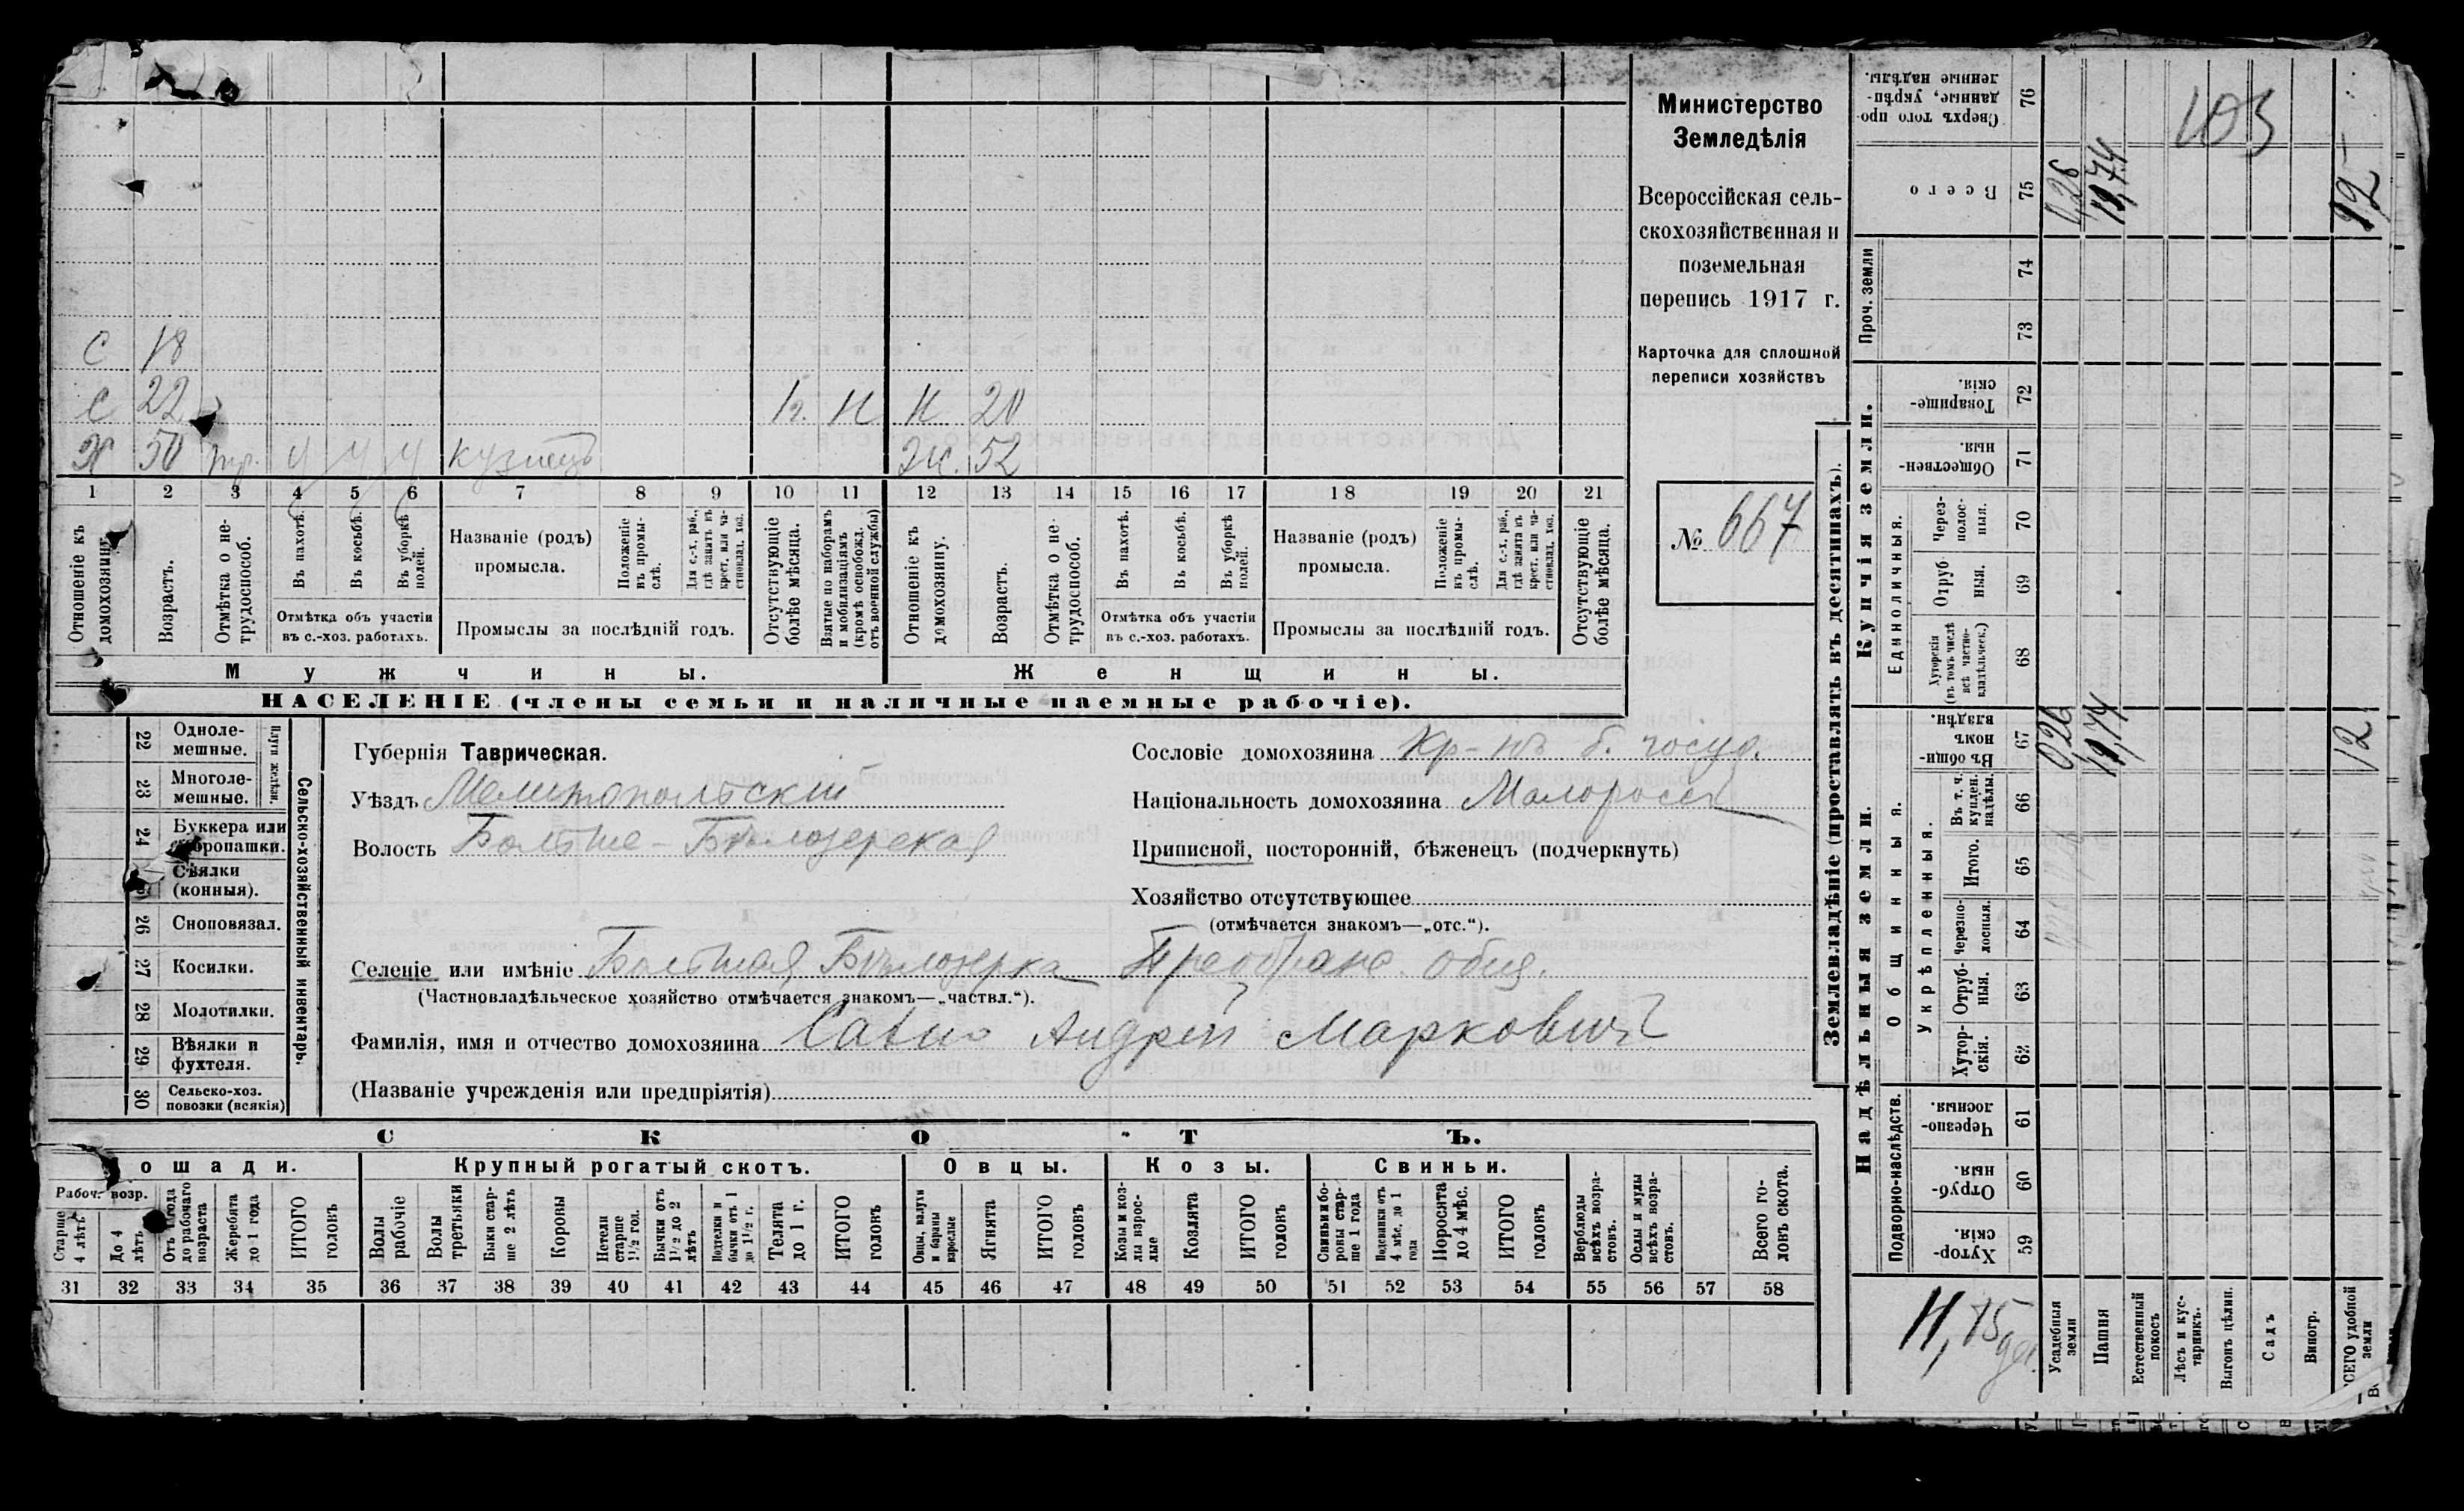 Министерство
Земледѣлія
Всероссійская сель-
скохозяйственная и
поземельная
перепись 1917 г.
Карточка для сплошной
переписи хозяйствъ
№ 667
С 18
С 22 1г. Н Н 20
Х 50 У У У кузнецъ Ж. 52
1 2 3 4 5 6 7 8 9 10 11 12 13 14 15 16 17 18 19 20 21
Отношеніе къ домохозяину.
Возрастъ.
Отмѣтка о не-трудоспособ.
Въ пахотѣ.
Въ косьбѣ.
Въ уборкѣ полей.
Отмѣтка объ участіи
въ с.-хоз. работахъ.
Названіе (родъ)
промысла.
Положеніе въ промы-слѣ.
Для с.-х. раб., гдѣ занятъ въ крест. или ча-стновлад. хоз.
Промыслы за послѣдній годъ.
Отсутствующіе болѣе мѣсяца.
Взятые по наборамъ и мобилизаціямъ (кромѣ освобожд. отъ военной службы)
Отношеніе къ домохозяину.
Возрастъ.
Отмѣтка о не-трудоспособ.
Въ пахотѣ.
Въ косьбѣ.
Въ уборкѣ полей.
Отмѣтка объ участіи
въ с.-хоз. работахъ.
Названіе (родъ)
промысла.
Положеніе въ промы-слѣ.
Для с.-х. раб., гдѣ занята въ крест. или ча-стновлад. хоз.
Промыслы за послѣдній годъ.
Отсутствующіе болѣе мѣсяца.
Мужчины.
Женщины.
НАСЕЛЕНІЕ (члены семьи и наличные наемные рабочіе).
22 Одноле-мешные.
23 Многоле-мешные.
Плуги желѣзн.
24 Буккера или
Сѣялки (конныя).
26 Сноповязал.
27 Косилки.
28 Молотилки.
29 Вѣялки и фухтеля.
30 Сельско-хоз. повозки (всякія)
Сельско-хозяйственный инвентарь.
Губернія Таврическая.
Уѣздъ Мелитопольскій
Волость Больше-Бѣлозерская
Селеніе или имѣніе Большая Бѣлозерка Преображ. общ.
(Частновладѣльческое хозяйство отмѣчается знакомъ—„частвл.“).
Фамилія, имя и отчество домохозяина Савно Андрей Марковичъ
(Названіе учрежденія или предпріятія)
Сословіе домохозяина Кр-нъ б. госуд.
Національность домохозяина Малороссъ
Приписной, посторонній, бѣженецъ (подчеркнуть)
Хозяйство отсутствующее
(отмѣчается знакомъ—„отс.“).
СКОТЪ.
ошади.
Рабоч. возр.
Старше 4 лѣтъ
До 4 лѣтъ
до рабочаго возраста
Жеребята до 1 года
ИТОГО головъ
Крупный рогатый скотъ.
Волы рабочіе
Волы третьяки
Быки стар-ше 2 лѣтъ
Коровы
Нетели старше 1½ год.
Бычки отъ 1½ до 2 лѣтъ
Подтелки и бычки отъ 1 до 1½ г.
Телята до 1 г.
ИТОГО головъ
Овцы.
Овцы, валухи и бараны взрослые
Ягнята
ИТОГО головъ
Козы.
Козы и коз-лы взрос-лые
Козлята
ИТОГО головъ
Свиньи.
Свиньи и бо-ровы стар-ше 1 года
Подсвинки отъ 4 мѣс. до 1 года
Поросята до 4 мѣс.
ИТОГО головъ
Верблюды всѣхъ возра-стовъ.
Ослы и мулы всѣхъ возра-стовъ.
Всего го-ловъ скота.
31 32 33 34 35 36 37 38 39 40 41 42 43 44 45 46 47 48 49 50 51 52 53 54 55 56 57 58
Землевладѣніе (проставлять въ десятинахъ).
Купчія земли.
Надѣльныя земли.
Сверхъ того про-данные, укрѣп-ленные надѣлы. 76
Всего 75 0,26 11,74 12
103
Проч. земли
74
73
Товарище-скія. 72
Обществен-ныя. 71
Единоличныя.
Через-полос-ныя. 70
Отруб-ныя. 69
Хуторскія (въ томъ числѣ всѣ частно-владѣльческ.) 68
Общинныя.
Въ общин-номъ владѣн. 67 0,26 11,74 12
Укрѣпленныя.
Въ т. ч. куплен. надѣлы. 66
Итого. 65
Черезпо-лосныя. 64
Отруб-ныя. 63
Хутор-скія. 62
Подворно-наслѣдств.
Черезпо-лосныя. 61
Отруб-ныя. 60
Хутор-скія. 59
11,75
Усадебныя земли
Пашня
Естественный покосъ
Лѣсъ и кус-тарникъ.
Выгонъ цѣлин.
Садъ
Виногр.
ВСЕГО удобной земли